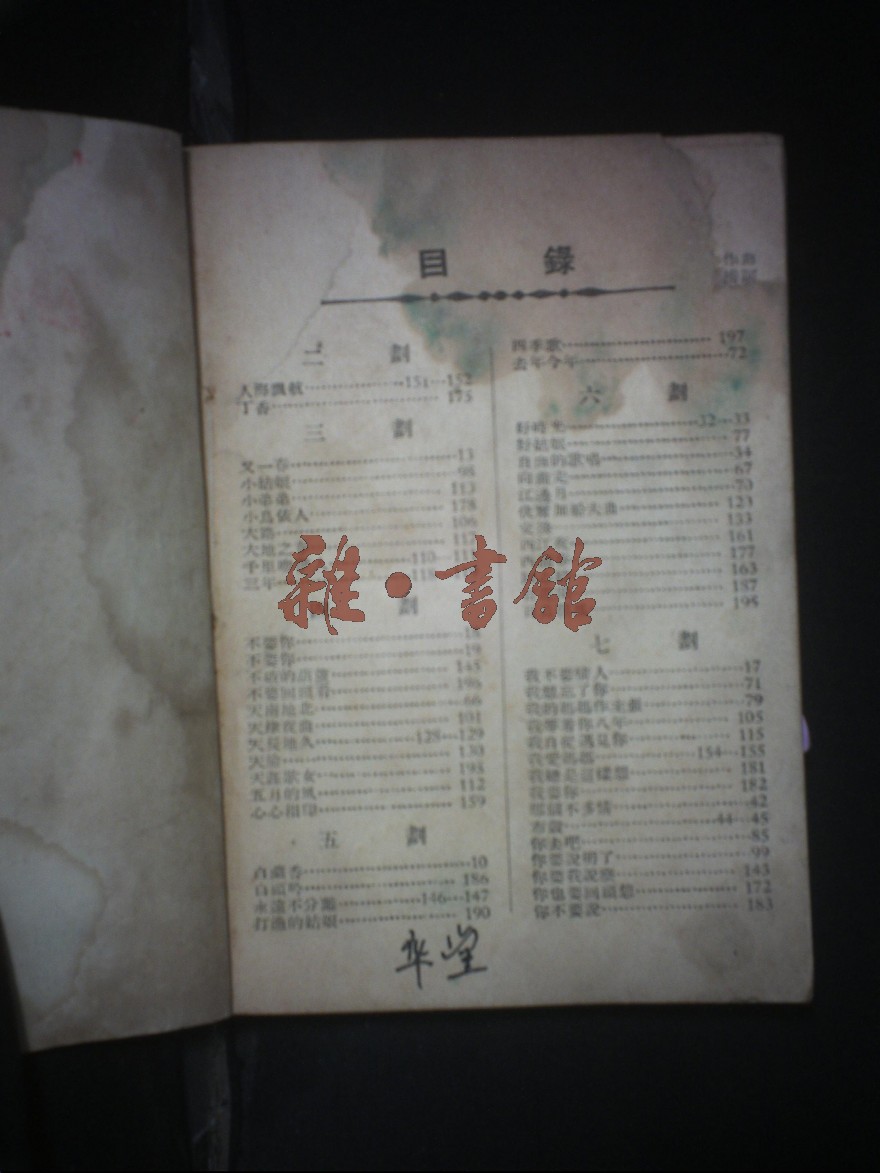 目 錄
二 劃
人海飄航 151—152
丁香 175
三 劃
又一春 13
小姑娘 98
小弟弟 113
小鳥依人 178
大路 106
大地之
千里 110
三年 118
劃
不要你 18
不要你 19
不 的 145
不要回頭看 196
天南地北 66
天 夜曲 101
天長地久 128—129
天 130
天涯歌女 193
五月的風 112
心心相印 159
五 劃
白蘭香 10
白頭吟 186
永遠不分離 146—147
打漁的姑娘 190
四季歌 197
去年今年 72
六 劃
好時光 32—33
好姑娘 77
自由的歌唱 34
向前走 67
江邊月 70
伏爾加船夫曲 123
交換 133
西江 161
西 177
163
187
195
七 劃
我不要 人 17
我想忘了你 71
我的媽媽作主張 79
我等着你八年 105
我自從遇見你 115
我愛媽媽 154—155
我總是這樣想 181
我要你 182
那個不多情 42
布穀 44—45
你去吧 85
你要說明了 99
你要我說 143
你也要回頭想 172
你不要說 183
雜·書館